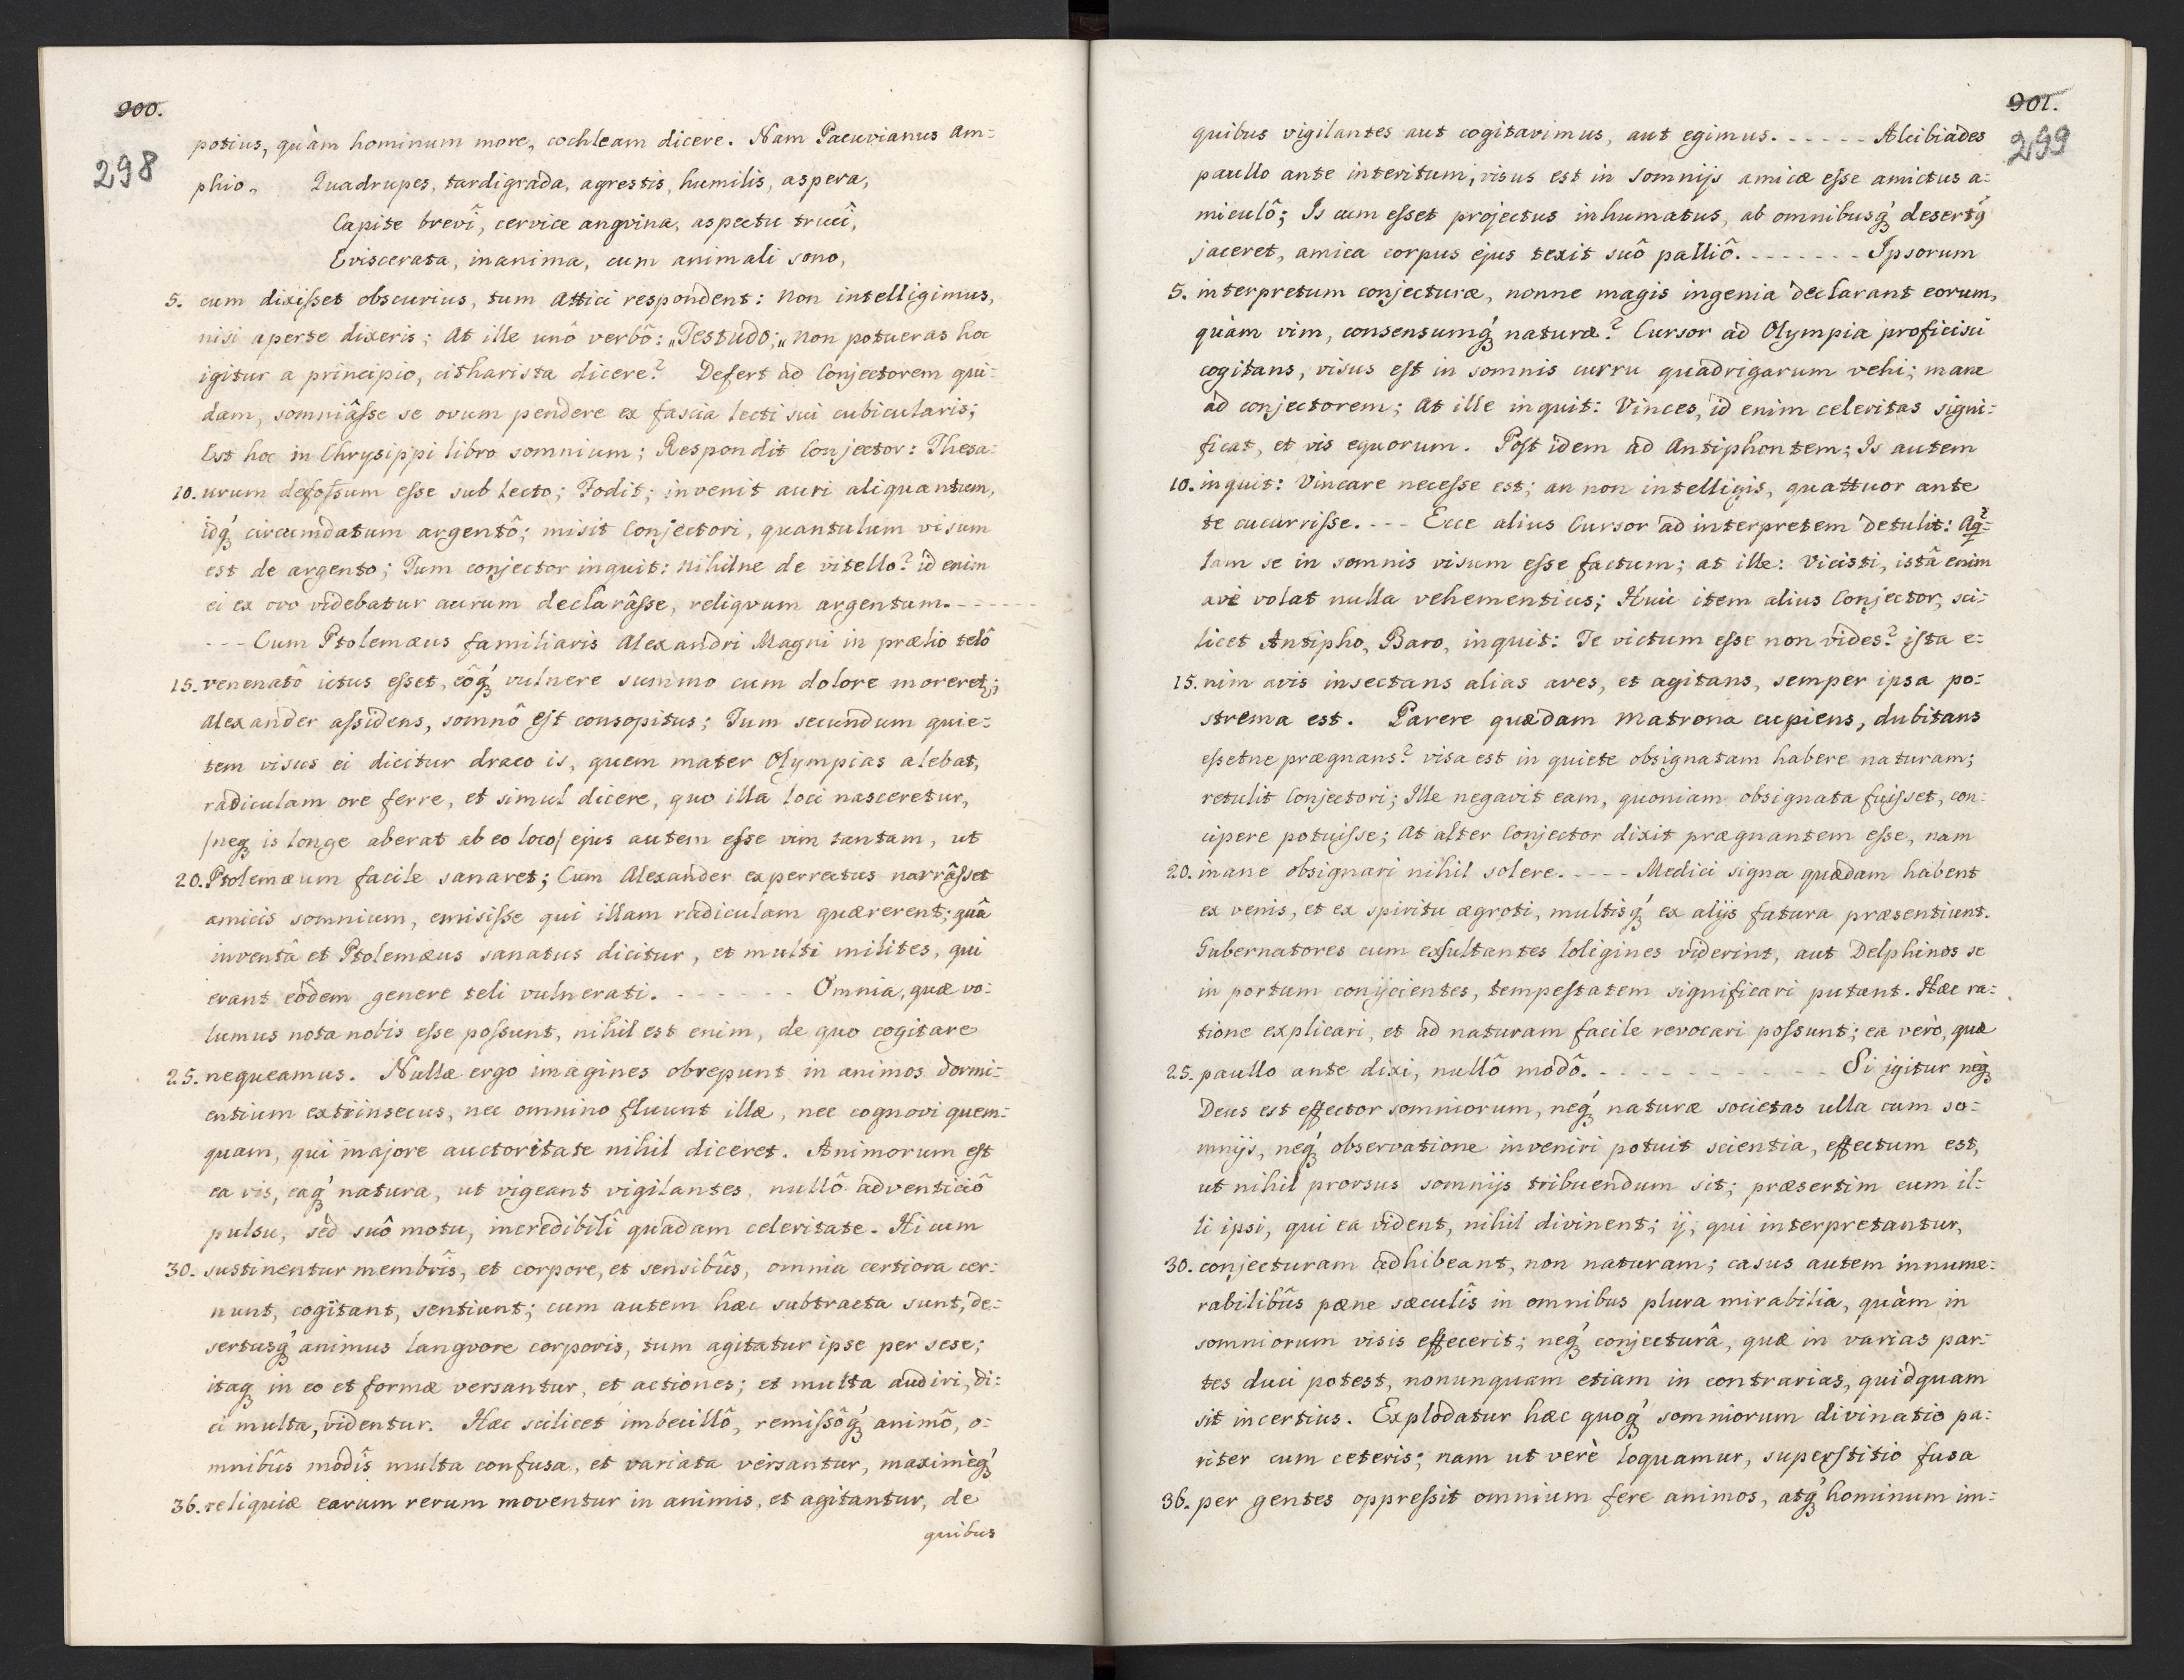 900.
298
potius, quàm hominum more, cochleam dicere. Nam Pacuvianus Am=
phio, Quadrupes, tardigrada, agrestis, humilis, aspera,
Capite brevî, cervice angvina, aspectu trucî,
Eviscerata, inanima, cum animali sono,
5. cum dixiſset obscurius, tum Attici respondent: Non intelligimus,
nisi aperte dixeris; At ille unô verbô: „Testudo;„ non potueras hoc
igitur a principio, citharista dicere? Defert ad Conjectorem qui=
dam, somniâſse se ovum pendere ex fascia lecti sui cubicularis;
Est hoc in Chrysippi libro somnium; Respondit Conjector: Thesa=
10. urum defoſsum eſse sub lecto; Fodit; invenit auri aliquantum,
idq́ꝫ circumdatum argentô; misit Conjectori, quantulum visum
est de argento; Tum conjector inquit: nihilne de vitello? id enim
ei ex ovo videbatur aurum declarâſse, reliqvum argentum. - - - - - -
- - - Cum Ptolemæus familiaris Alexandri Magni in prælio telô
15. venenatô ictus eſset, eôq́ꝫ vulnere summo cum dolore moreretꝫ;
Alexander aſsidens, somnô eſt consopitus; Tum secundum quie=
tem visus ei dicitur draco is, quem mater Olympias alebat,
radiculam ore ferre, et simul dicere, quo illa loci nasceretur,
/neqꝫ is longe aberat ab eo loco/ ejus autem eſse vim tantam, ut
20. Ptolemæum facile sanaret; Cum Alexander experrectus narrâſset
amicis somnium, emisiſse qui illam radiculam quærerent; quâ
inventâ et Ptolemæus sanatus dicitur, et multi milites, qui
erant eôdem genere teli vulnerati. - - - - - - - Omnia, quæ vo=
lumus nota nobis eſse poſsunt, nihil est enim, de quo cogitare
25. nequeamus. Nullæ ergo imagines obrepunt in animos dormi=
entium extrinsecus, nec omnino fluunt illæ, nec cognovi quem=
quam, qui majore auctoritate nihil diceret. Animorum eſt
ea vis, eaq́ꝫ natura, ut vigeant vigilantes, nullô adventiciô
pulsu, sed suô motu, incredibilî quadam celeritate. Hi cum
30. sustinentur membrîs, et corpore, et sensibûs, omnia certiora cer=
nunt, cogitant, sentiunt; cum autem hæc subtracta sunt, de=
sertusq́ꝫ animus langvore corporis, tum agitatur ipse per sese;
itaqꝫ in eo et formæ versantur, et actiones; et multa audiri, di=
ci multa, videntur. Hæc scilicet imbecillô, remiſsôq́ꝫ animô, o=
mnibûs modîs multa confusa, et variata versantur, maximèq́ꝫ
36. reliquiæ earum rerum moventur in animis, et agitantur, de
quibus
901.
299
quibus vigilantes aut cogitavimus, aut egimus. - - - - - Alcibiades
paullo ante interitum, visus est in somnijs amicæ eſse amictus a=
miculô; Is cum eſset projectus inhumatus, ab omnibusq́ꝫ desertꝰ
jaceret, amica corpus ejus texit suô palliô. - - - - - - - Ipsorum
5. interpretum conjecturæ, nonne magis ingenia declarant eorum,
quàm vim, consensumq́ꝫ naturæ? Cursor ad Olympia proficisci
cogitans, visus eſt in somnis curru quadrigarum vehi; mane
ad conjectorem; At ille inquit: Vinces, id enim celeritas signi=
ficat, et vis equorum. Poſt idem ad Antiphontem; Is autem
10. inquit: Vincare neceſse est; an non intelligis, quattuor ante
te cucurriſse. - - - Ecce alius Cursor ad interpretem detulit: Aq̃=
lam se in somnis visum eſse factum; at ille: Vicisti, istâ enim
avè volat nulla vehementius; Huic item alius Conjector, sci=
licet Antipho, Baro, inquit: Te victum eſse non vides? iſta e=
15. nim avis insectans alias aves, et agitans, semper ipsa po=
strema est. Parere quædam Matrona cupiens, dubitans
eſsetne prægnans? visa est in quiete obsignatam habere naturam;
retulit Conjectori; Ille negavit eam, quoniam obsignata fuiſset, con=
cipere potuiſse; At alter Conjector dixit prægnantem eſse, nam
20. inane obsignari nihil solere. - - - - Medici signa quædam habent
ex venis, et ex spiritu ægroti, multisq́ꝫ ex alijs futura præsentiunt.
Gubernatores cum exſultantes loligines viderint, aut Delphinos se
in portum conijcientes, tempeſtatem significari putant. Hæc ra=
tione explicari, et ad naturam facile revocari poſsunt; ea verò, quæ
25. paullo ante dixi, nullô modô. - - - - - - - - - - - - Si igitur neq́ꝫ
Deus est effector somniorum, neq́ꝫ naturæ societas ulla cum so=
mnijs, neq́ꝫ observatione inveniri potuit scientia, effectum est,
ut nihil prorsus somnijs tribuendum sit; præsertim cum il=
li ipsi, qui ea vident, nihil divinent; ij, qui interpretantur,
30. conjecturam adhibeant, non naturam; casus autem innume=
rabilibûs pæne sæculîs in omnibus plura mirabilia, quàm in
somniorum visis effecerit; neq́ꝫ conjecturâ, quæ in varias par=
tes duci potest, nonunquam etiam in contrarias, quidquam
sit incertius. Explodatur hæc quoq́ꝫ somniorum divinatio pa=
riter cum ceteris; nam ut verè loquamur, superſtitio fusa
36. per gentes oppreſsit omnium fere animos, atq́ꝫ hominum im=